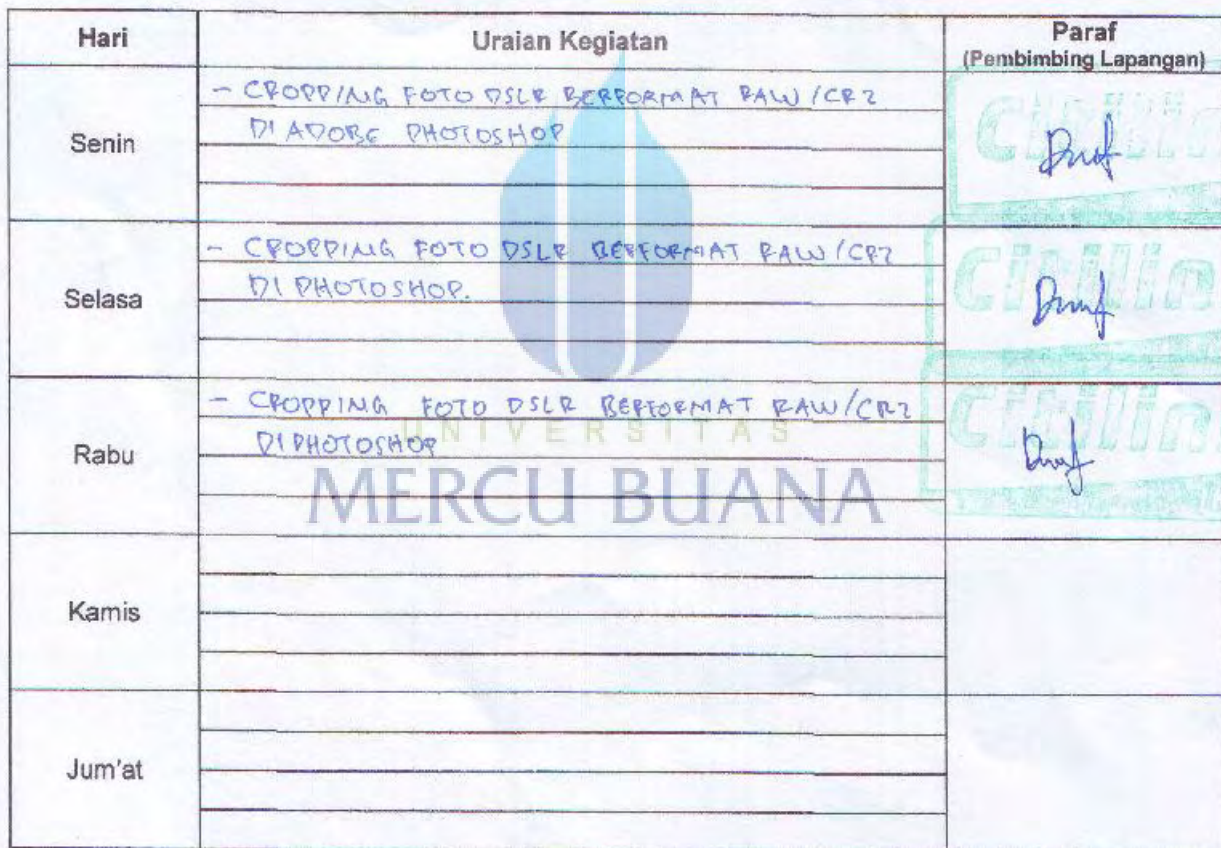 Hari Uraian Kegiatan Paraf
(Pembimbing Lapangan)
Senin
- CROPPING FOTO DSLR BERFORMAT RAW/CR2
DI ADOBE PHOTOSHOP
Selasa
- CROPPING FOTO DSLR BERFORMAT RAW/CR2
DI PHOTOSHOP.
Rabu
- CROPPING FOTO DSLR BERFORMAT RAW/CR2
DI PHOTOSHOP
UNIVERSITAS
MERCU BUANA
Kamis
Jum'at